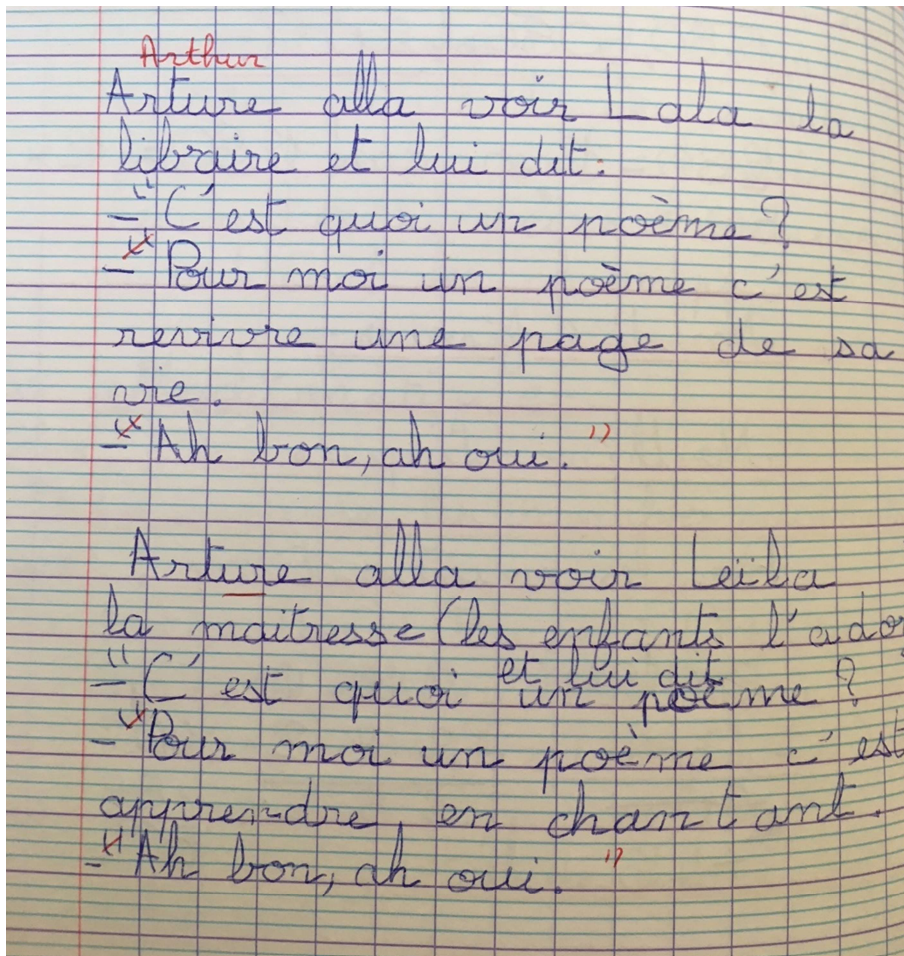 Arthur
Arture alla voir Lala la
libraire et lui dit:
-"C'est quoi un poème?
-"Pour moi un poème c'est
revivre une page de sa
vie.
-"Ah bon, ah oui."
Arture alla voir Leila
la maitresse (les enfants l'ado
et lui dit
-"C'est quoi un poème?
-"Pour moi un poème c'est
apprendre en chantant.
-"Ah bon, ah oui."